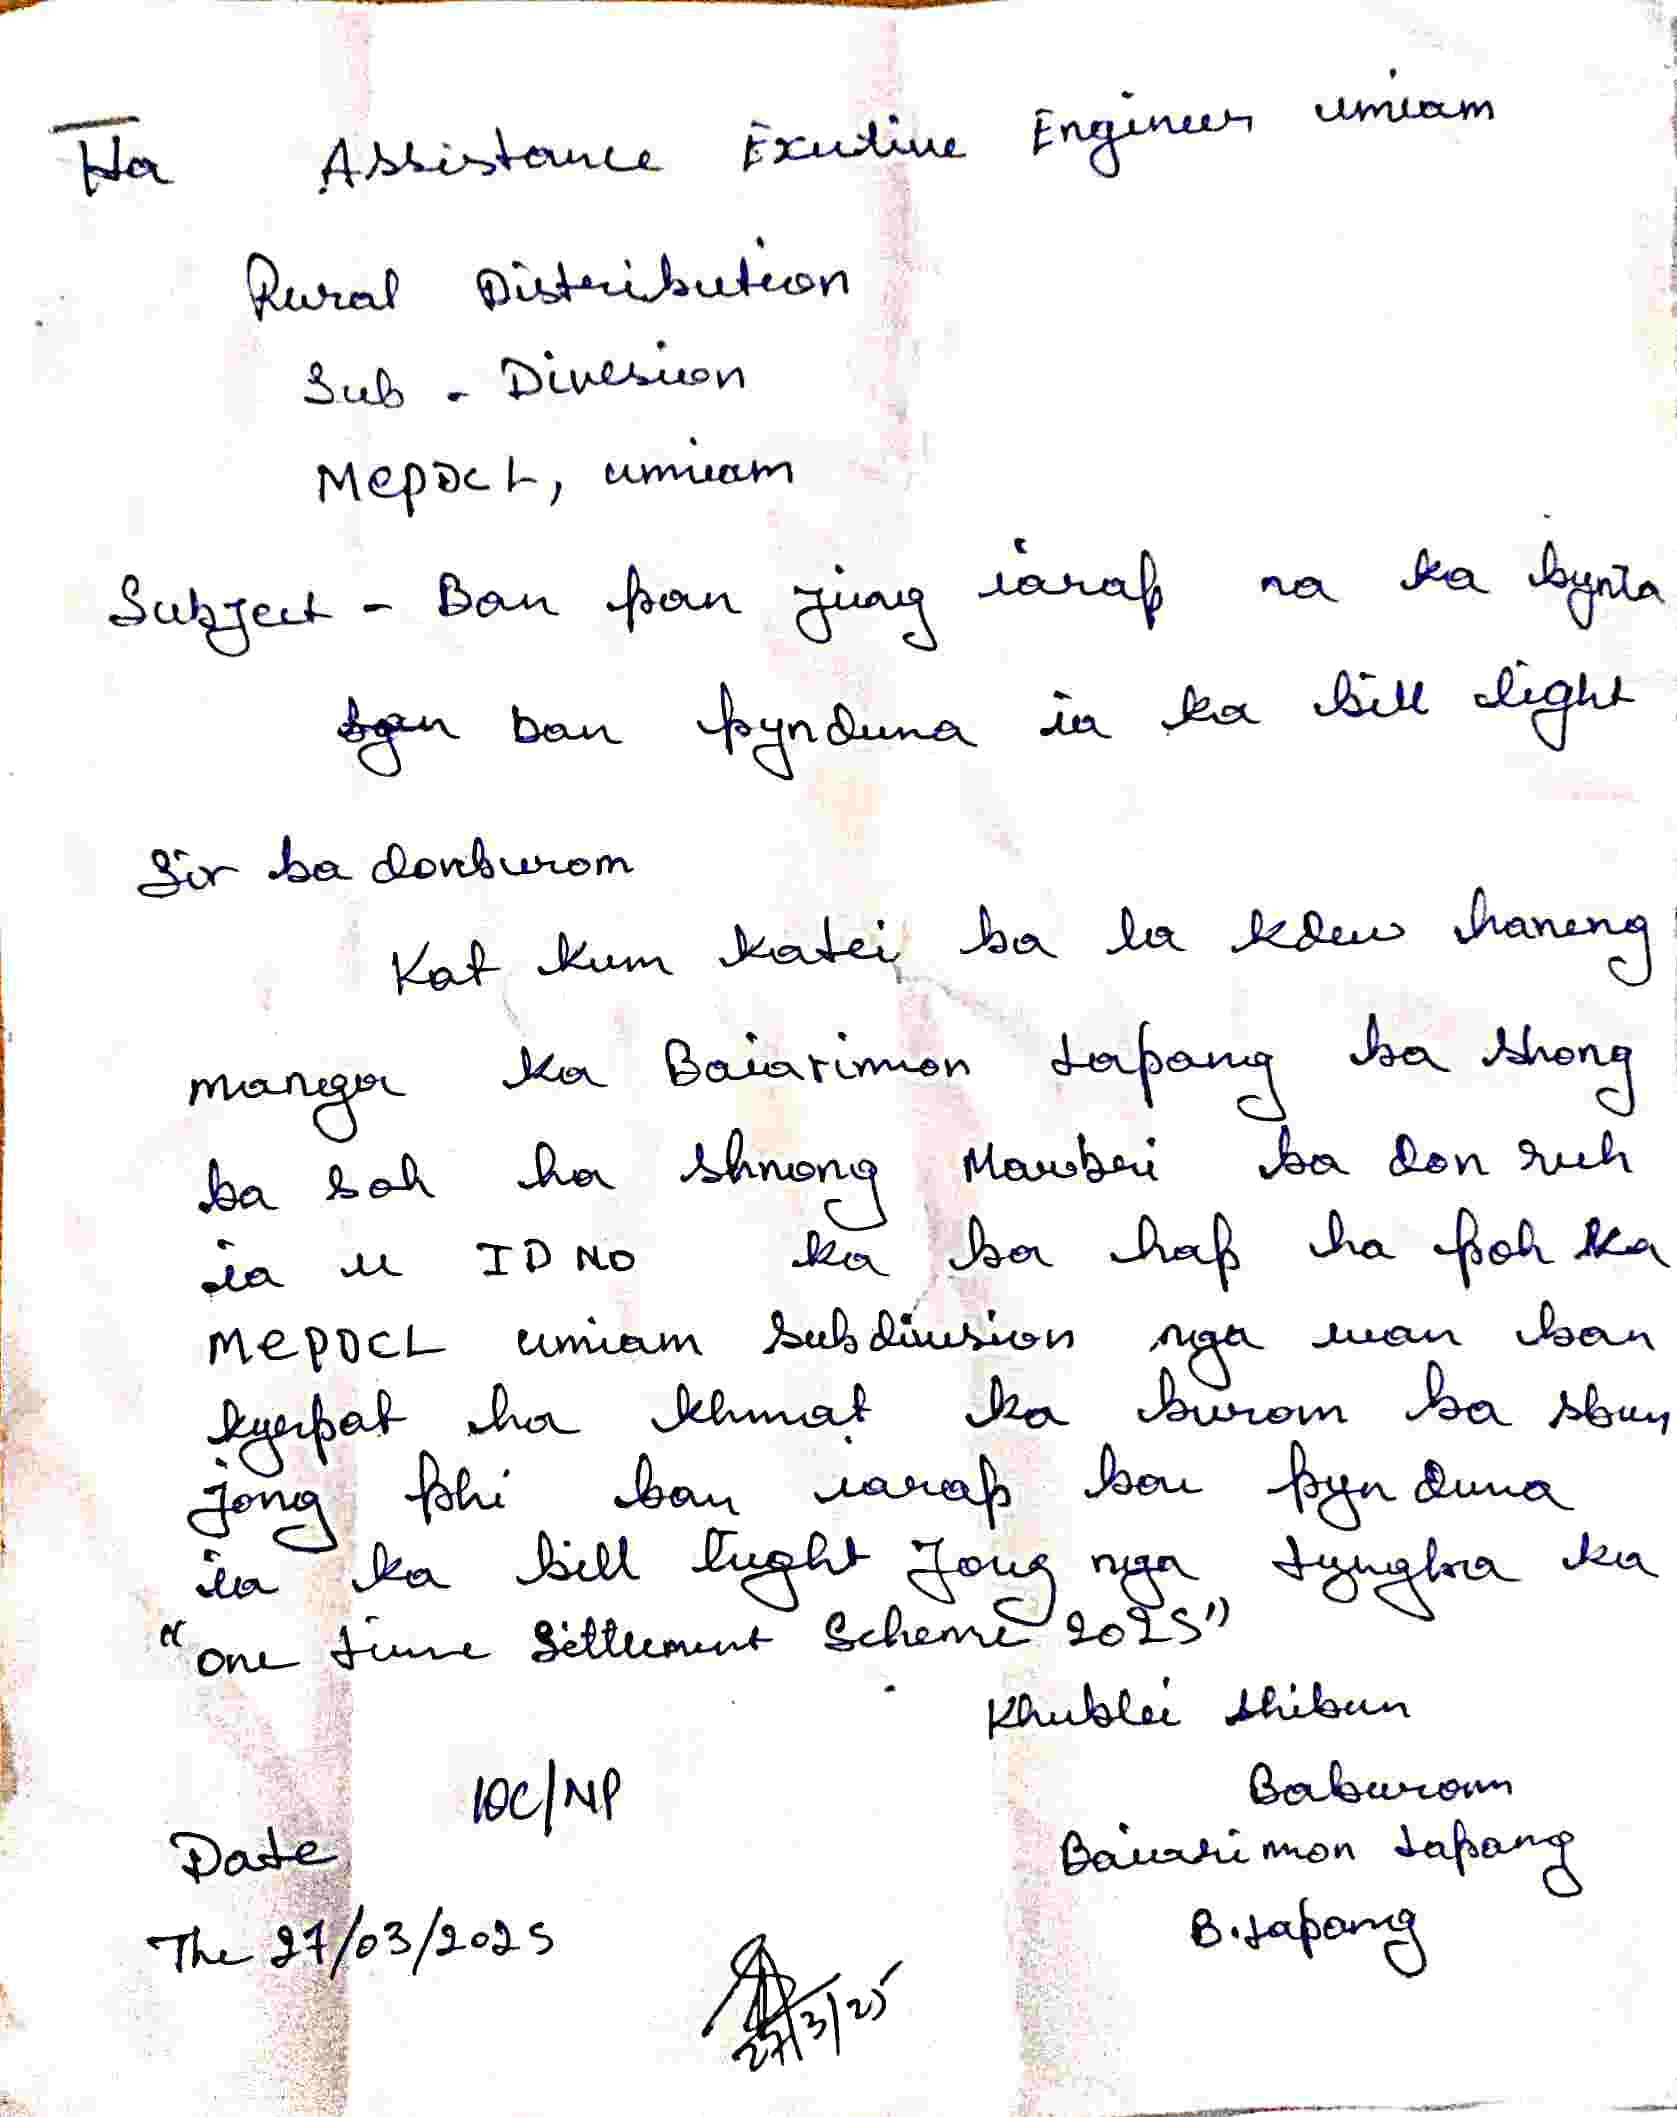 Ha Assistance Exutive Engineer umiam
Rural Distribution
Sub - Divesion
MePDCL, umiam
Subject - Ban pan jing iarap na ka bynta
ban pynduna ia ka bill light
Sir ba donburom
Kat kum katei ba la kdew haneng
manga ka Baiarimon tapang ba shong
ba sah ha shnong Mawbri ba don ruh
ia u ID NO ka ba hap ha poh ka
MePDCL umiam Subdivision nga wan ban
kyrpat ha khmat ka burom ba sbun
jong phi ban iarap ban pynduna
ia ka bill light Jong nga tyngka ka
"one time Settlement Scheme 2025"
Khublei shibun
Baburom
Baiarimon tapang
B. tapang
IOC/NP
Date
The 27/03/2025
27/3/25